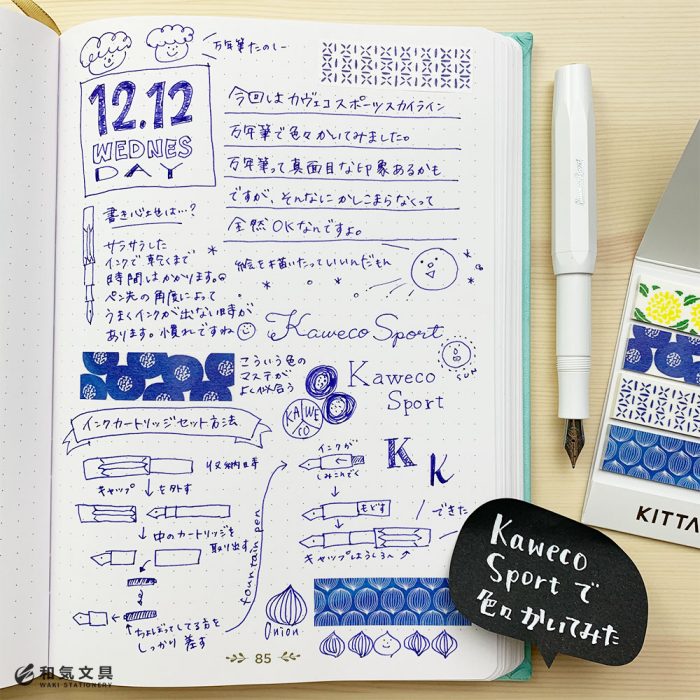 万年筆たのしー
12.12
WEDNES
DAY
今回はカヴェコスポーツスカイライン
万年筆で色々かいてみました。
万年筆って真面目な印象あるかも
ですが、そんなにかしこまらなくって
全然OKなんですよ。
書き心地は…?
サラサラした
インクで乾くまで
時間はかかります。
ペン先の角度によって
うまくインクが出ない時が
あります。慣れですね
絵を描いたっていいんだもん
Kaweco Sport
SUN
こういう色の
マステが
よく似合う
Kaweco
Sport
KA WE
CO
インクカートリッジセット方法
収納時
キャップ を外す
中のカートリッジを
取り出す
ちょぼってしてる方を
しっかり差す
fountain pen
インクが
しみこんでく
K
K
もどす
できた
キャップはうしろへ
Onion
85
Kaweco
Sportで
色々かいてみた
KITTA
和気文具
WAKI STATIONERY